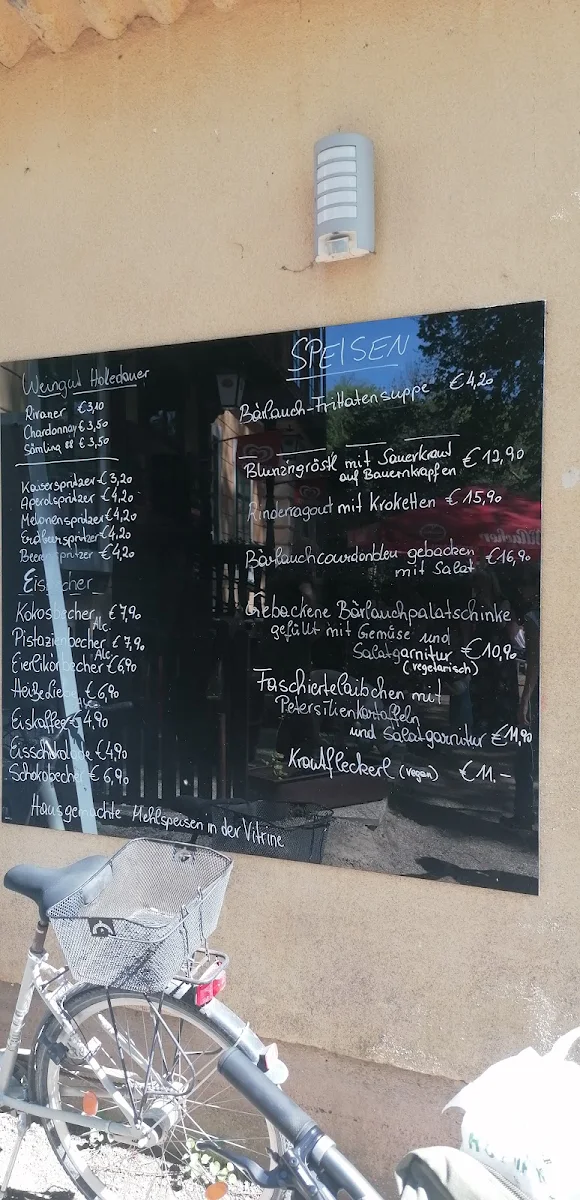 Weingut Holledauer
Rivaner €3,10
Chardonnay €3,50
Sämling 88 €3,50
Kaiserspritzer €3,20
Aperolspritzer €4,20
Melonenspritzer €4,20
Erdbeerspritzer €4,20
Beerenspritzer €4,20
Eisbecher
Kokosbecher €7,90
Alc.
Pistazienbecher €7,90
Alc.
Eierlikörbecher €6,90
Heiße Liebe €6,90
Eiskaffee €4,90
Eisschokolade €4,90
Schokobecher €6,90
Hausgemachte Mehlspeisen in der Vitrine
SPEISEN
Bärlauch-Frittatensuppe €4,20
Blunzngröstl mit Sauerkraut
auf Bauernkrapfen €12,90
Rinderragout mit Kroketten €15,90
Bärlauchcourdonbleu gebacken €16,90
mit Salat
Gebackene Bärlauchpalatschinke
gefüllt mit Gemüse und
Salatgarnitur €10,90
(vegetarisch)
Faschiertelaibchen mit
Petersilienkartoffeln
und Salatgarnitur €11,90
Krautfleckerl (vegan) €11.-